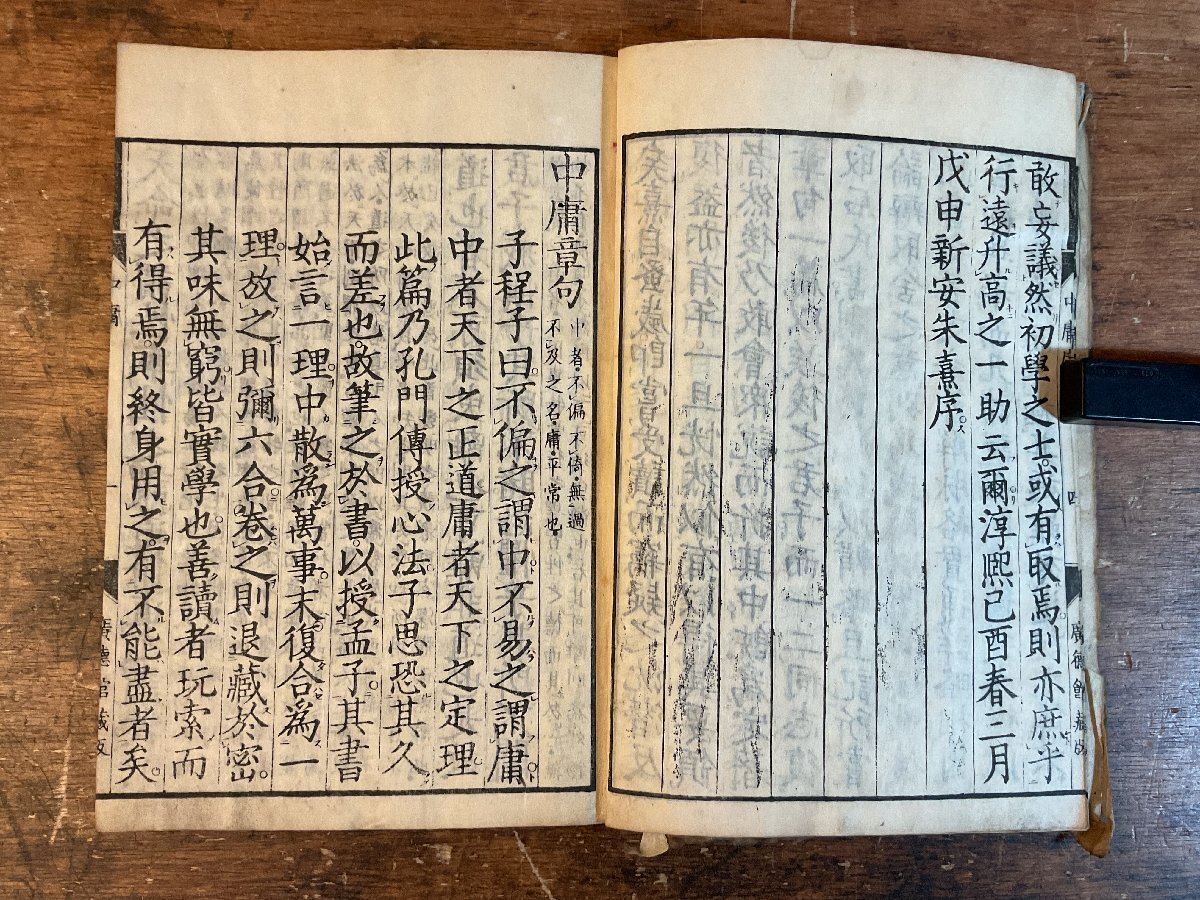 敢妄議然初學之士或有取焉則亦庶乎
行遠升高之一助云爾淳熙己酉春三月
戊申新安朱熹序
中庸章句
中者不偏不倚無過
不及之名庸平常也
子程子曰不偏之謂中不易之謂庸
中者天下之正道庸者天下之定理
此篇乃孔門傳授心法子思恐其久
而差也故筆之於書以授孟子其書
始言一理中散爲萬事末復合爲一
理放之則彌六合卷之則退藏於密
其味無窮皆實學也善讀者玩索而
有得焉則終身用之有不能盡者矣
中庸
一